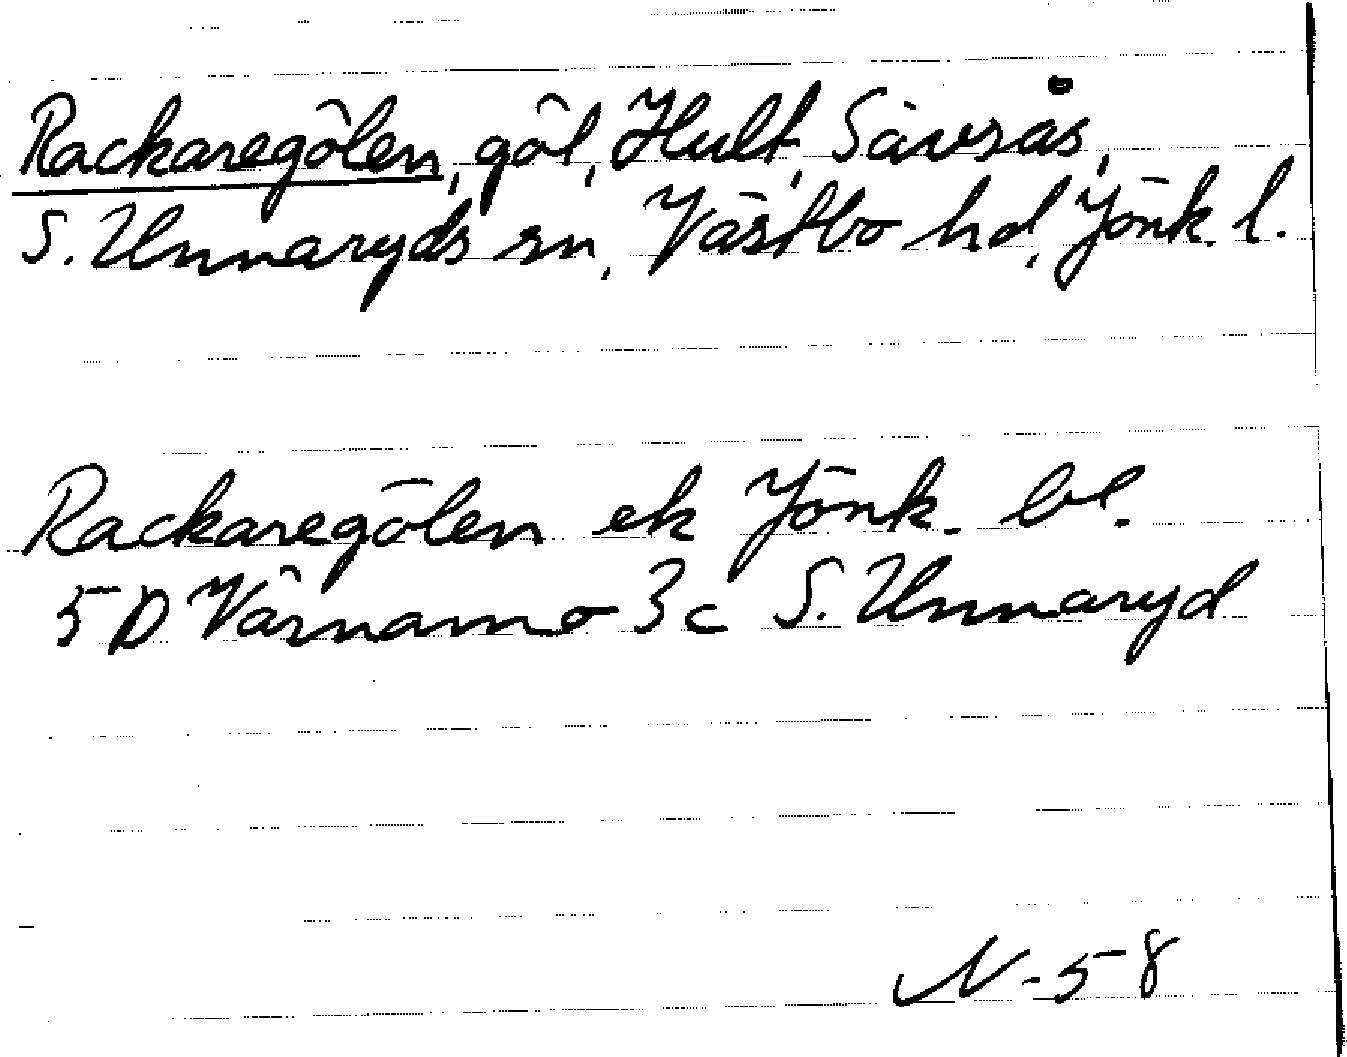 Rackaregölen, göl, Hult, Sävsås,
S. Unnaryds sn, Västbo hd, Jönk. l.
Rackaregölen ek Jönk. bl.
5D Värnamo 3c S. Unnaryd
N-58